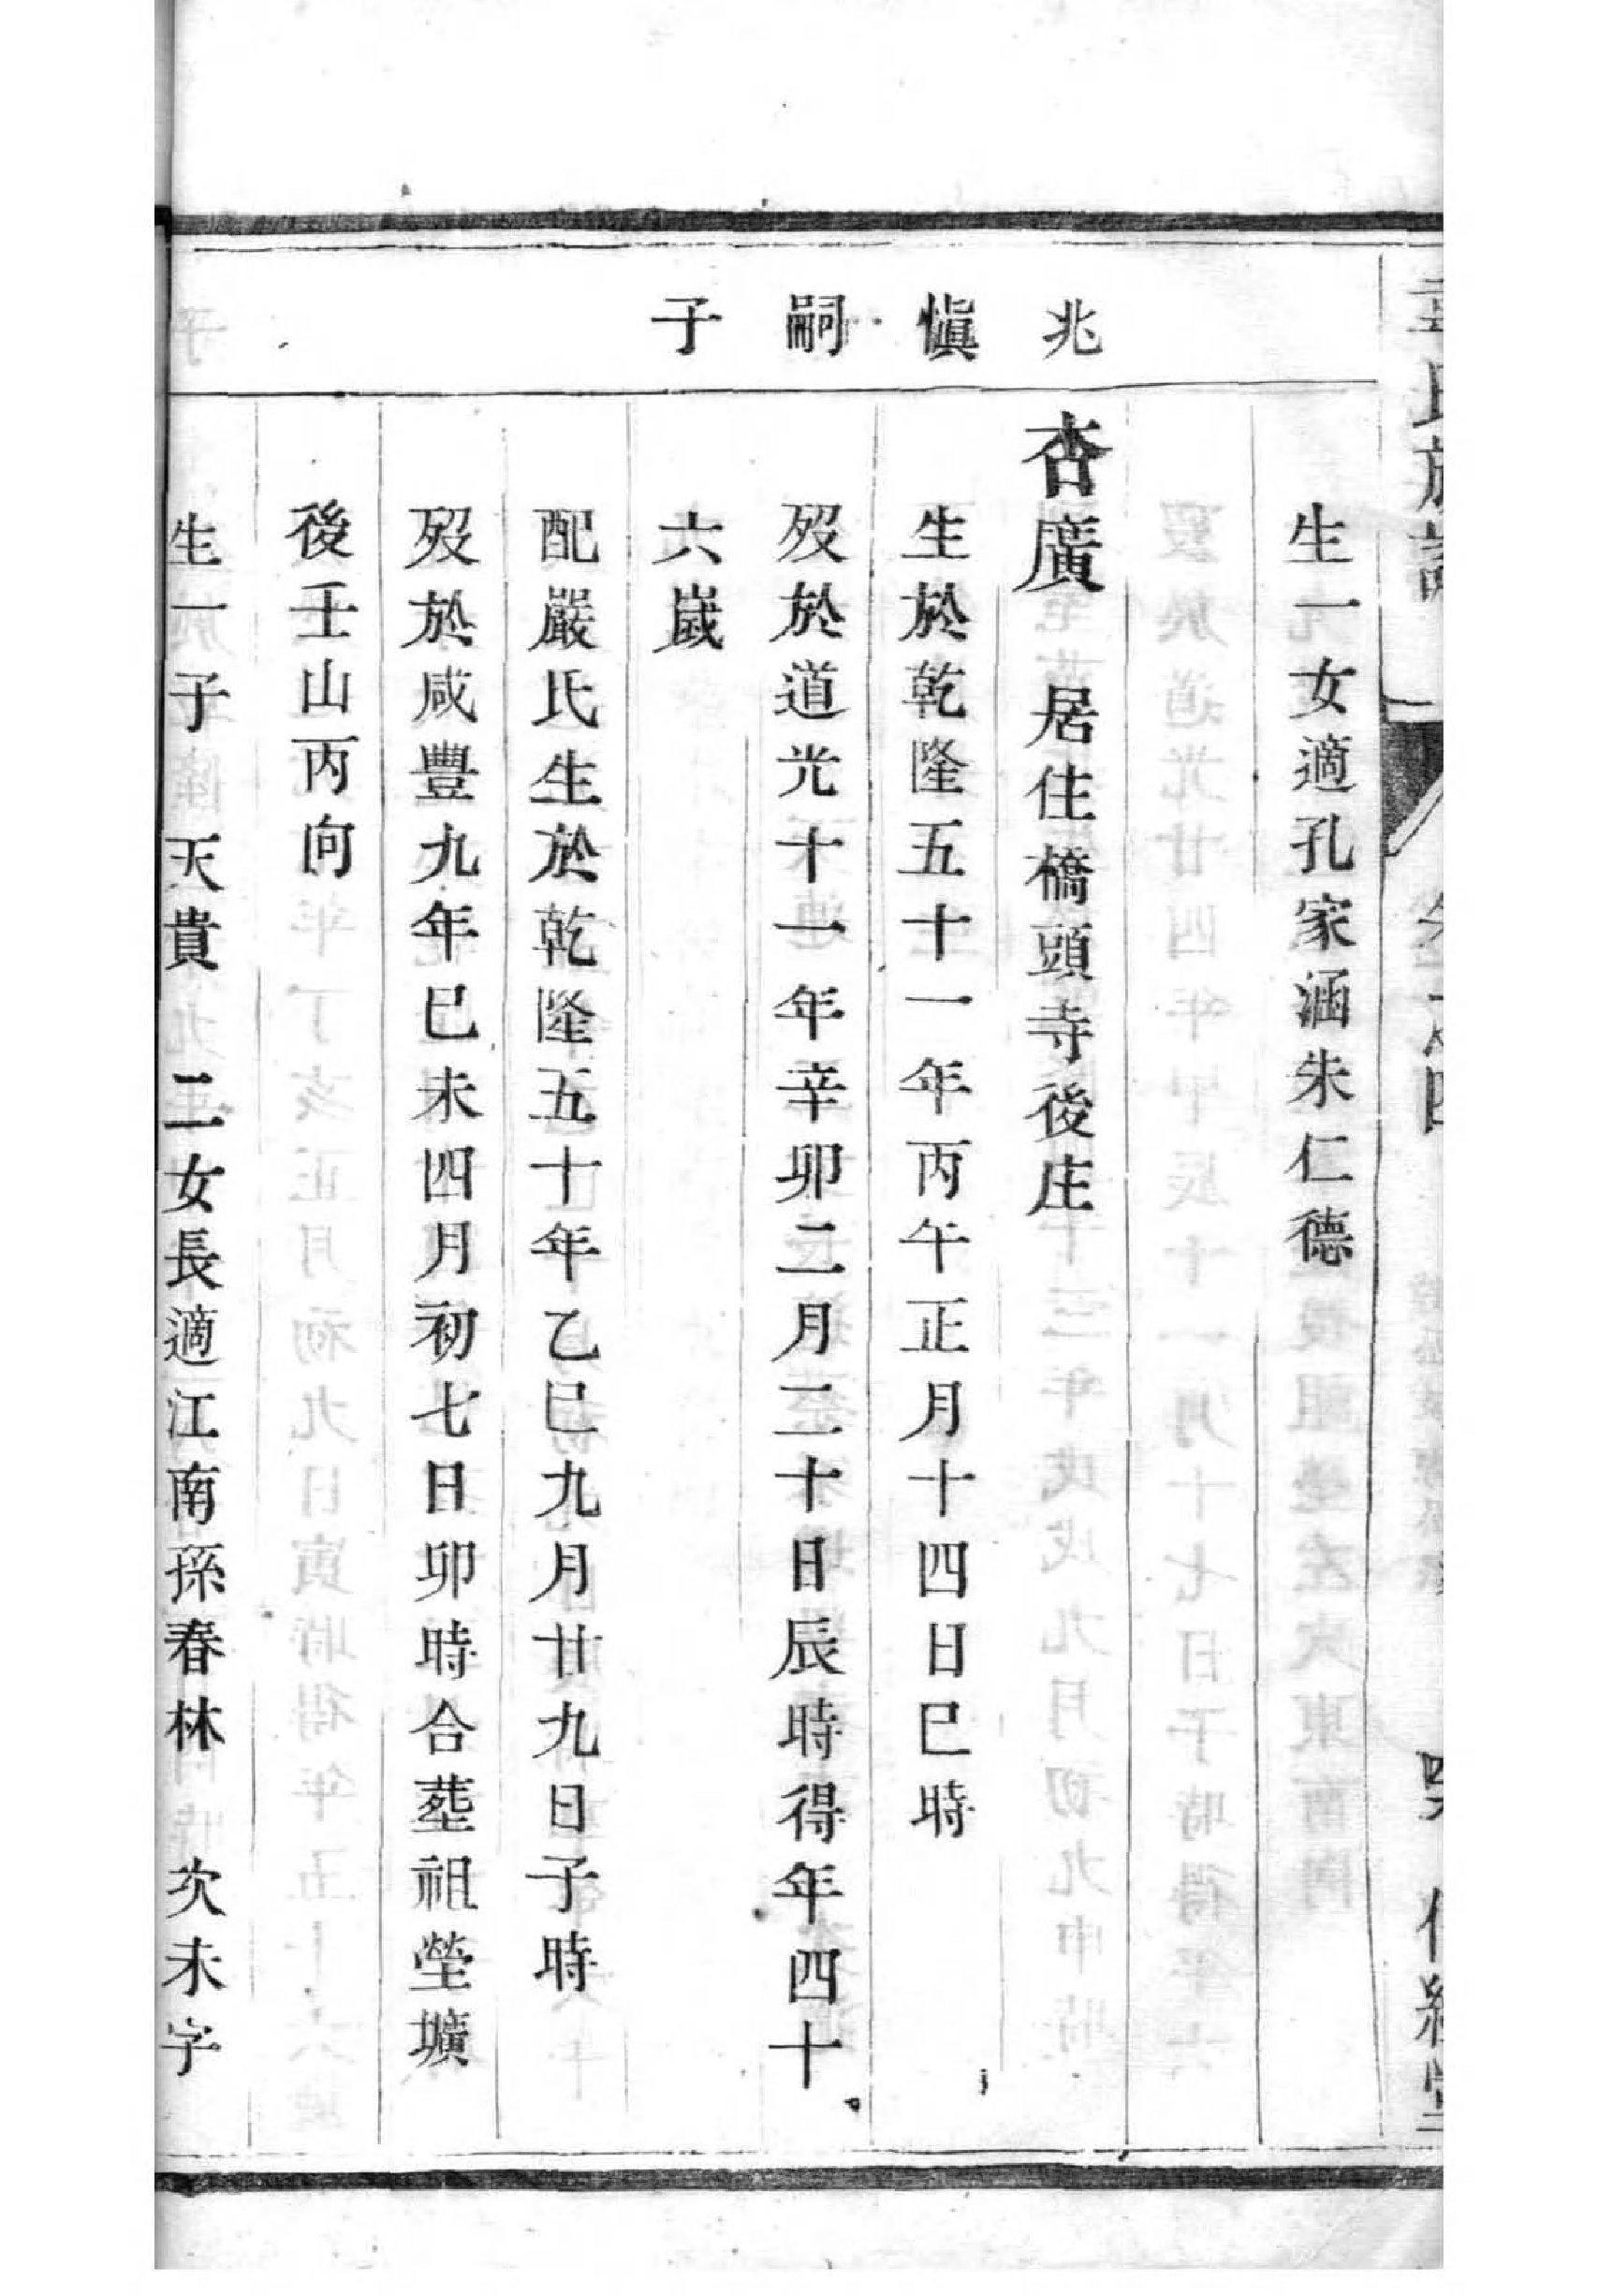 氏族
四
兆慎嗣子
生一女適孔家涵朱仁德
杏廣　居住橋頭寺後庄
生於乾隆五十一年丙午正月十四日巳時
歿於道光十一年辛卯二月二十日辰時得年四十
六歲
配嚴氏生於乾隆五十年乙巳九月廿九日子時
歿於咸豐九年巳未四月初七日卯時合塟祖塋壙
後壬山丙向
生一子　天貴　二女長適江南孫春林　次未字